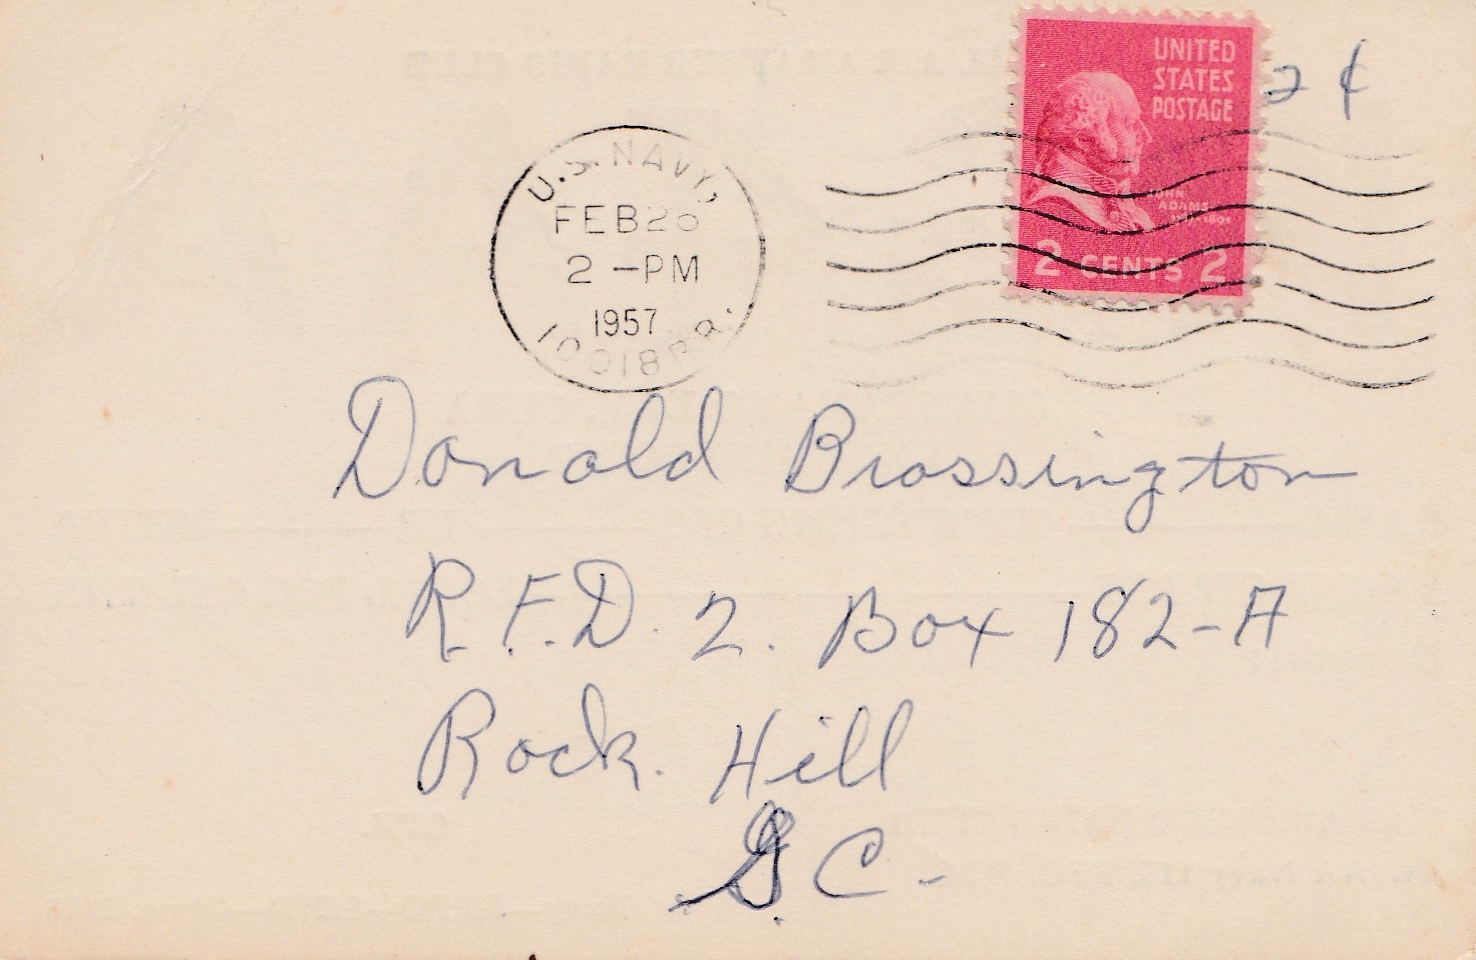 UNITED
STATES
POSTAGE
2 ¢
JOHN
ADAMS
2 CENTS 2
U.S. NAVY
FEB 26
2 -PM
1957
10018 BR.
Donald Brassington
R.F.D. 2. Box 182-A
Rock Hill
S.C.